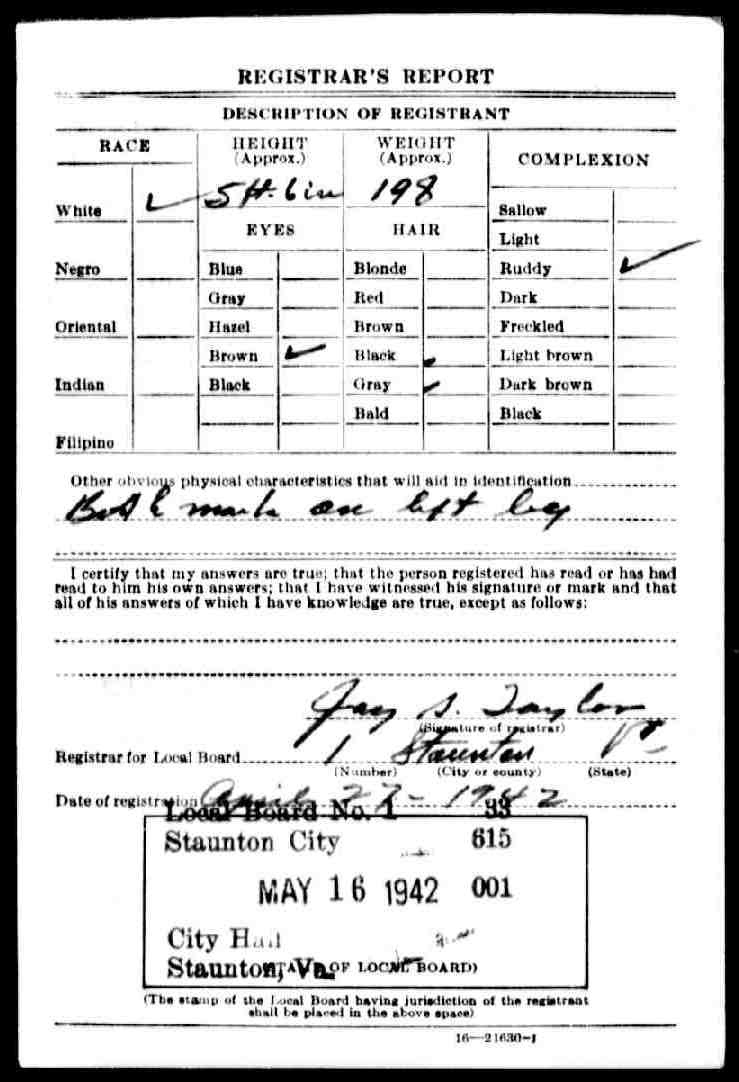 REGISTRAR'S REPORT
DESCRIPTION OF REGISTRANT
RACE HEIGHT (Approx.) WEIGHT (Approx.) COMPLEXION
White ✓ 5 ft. 6 in 198 Sallow
EYES HAIR Light
Negro Blue Blonde Ruddy ✓
Gray Red Dark
Oriental Hazel Brown Freckled
Brown ✓ Black Light brown
Indian Black Gray ✓ Dark brown
Bald Black
Filipino
Other obvious physical characteristics that will aid in identification
mark on left leg
I certify that my answers are true; that the person registered has read or has had
read to him his own answers; that I have witnessed his signature or mark and that
all of his answers of which I have knowledge are true, except as follows:
Jay S. Taylor
(Signature of registrar)
Registrar for Local Board 1 Staunton Va
(Number) (City or county) (State)
Date of registration April 27 - 1942
Local Board No. 1 33
Staunton City 615
MAY 16 1942 001
City Hall
Staunton, Va.
(STAMP OF LOCAL BOARD)
(The stamp of the Local Board having jurisdiction of the registrant
shall be placed in the above space)
16—21630-1